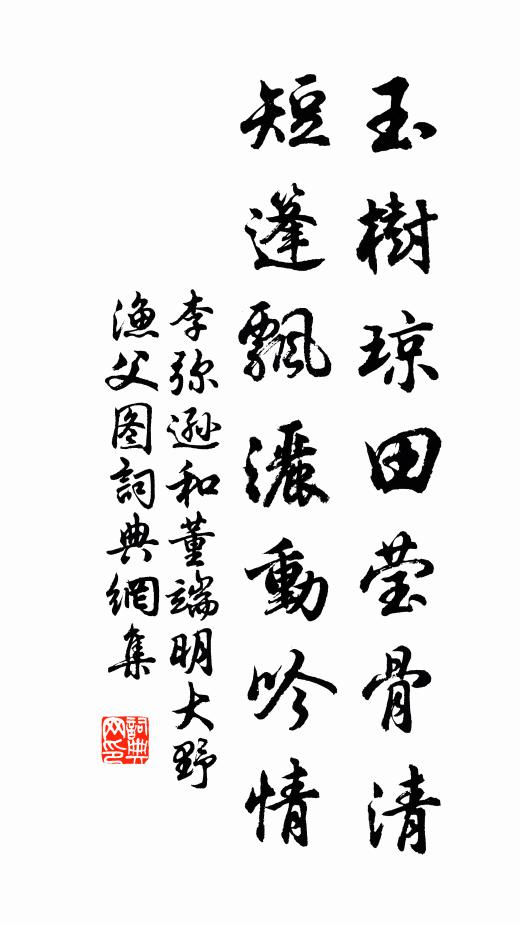 玉樹琼田莹骨清
短篷飄灑動吟情
李弥逊和董端明大野
漁父图詞典網集
詞典網印